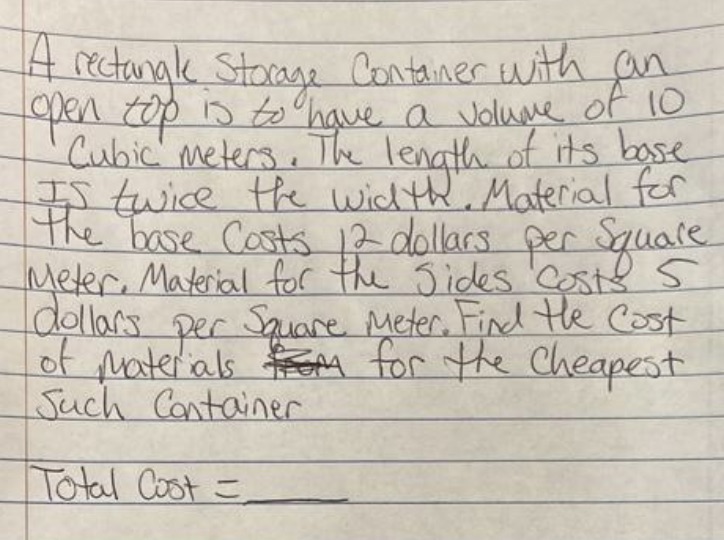 A rectangle Storage Container with an
open top is to have a volume of 10
Cubic meters. The length of its base
IS twice the width. Material for
the base Costs 12 dollars per Square
Meter. Material for the Sides Costs 5
dollars per Square Meter. Find the Cost
of Materials for the Cheapest
Such Container
Total Cost = ______